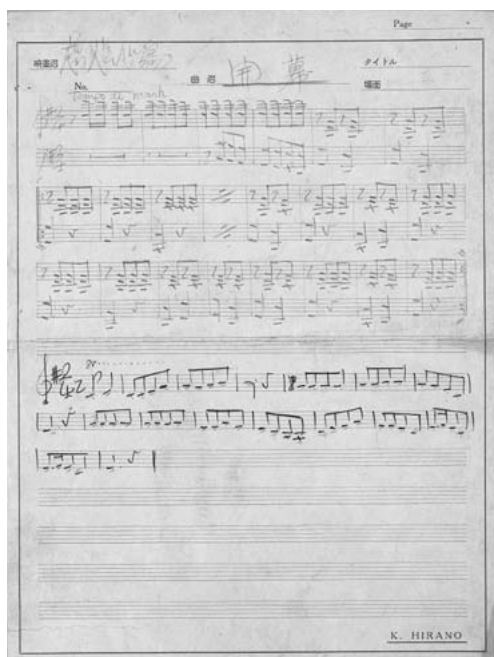 Page
映画名
タイトル
No.
曲名 開幕
場面
Tempo di march
8va
2
4
K. HIRANO